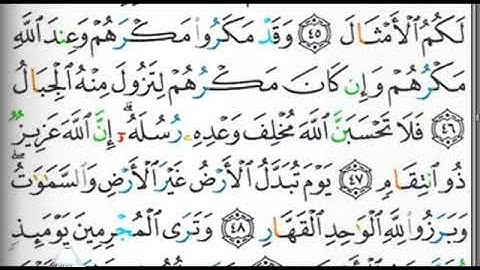 لَكُمُ ٱلْأَمْثَالَ ۝٤٥ وَقَدْ مَكَرُوا۟ مَكْرَهُمْ وَعِندَ ٱللَّهِ
مَكْرُهُمْ وَإِن كَانَ مَكْرُهُمْ لِتَزُولَ مِنْهُ ٱلْجِبَالُ
۝٤٦ فَلَا تَحْسَبَنَّ ٱللَّهَ مُخْلِفَ وَعْدِهِۦ رُسُلَهُۥٓ ۗ إِنَّ ٱللَّهَ عَزِيزٌ
ذُو ٱنتِقَامٍ ۝٤٧ يَوْمَ تُبَدَّلُ ٱلْأَرْضُ غَيْرَ ٱلْأَرْضِ وَٱلسَّمَٰوَٰتُ ۖ
وَبَرَزُوا۟ لِلَّهِ ٱلْوَٰحِدِ ٱلْقَهَّارِ ۝٤٨ وَتَرَى ٱلْمُجْرِمِينَ يَوْمَئِذٍ